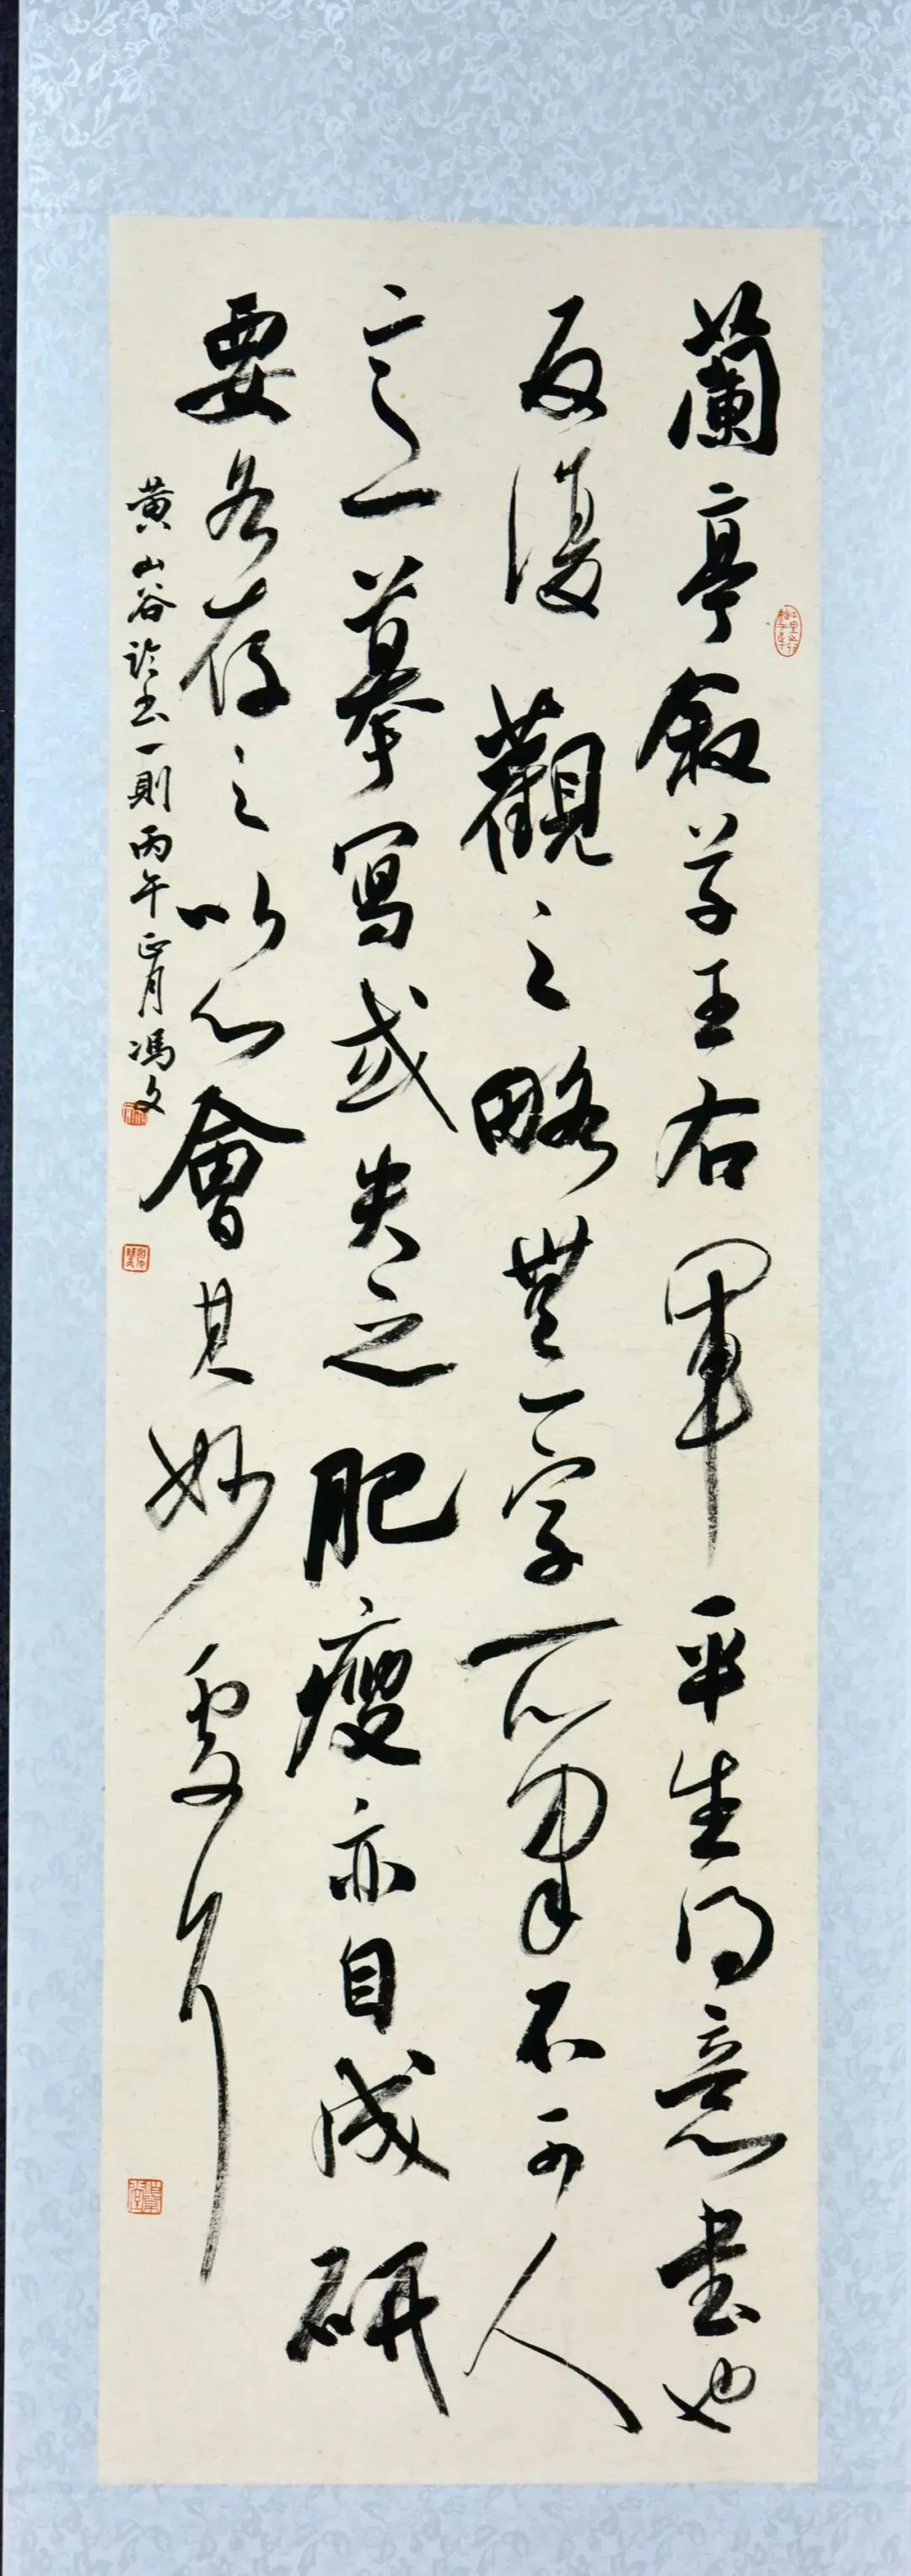 蘭亭叙草王右軍平生得意書也
反復觀之略無一字一筆不可人
意摹寫或失之肥瘦亦自成研
要各存之以心會其妙處爾
黄山谷論書一則丙午正月馮文